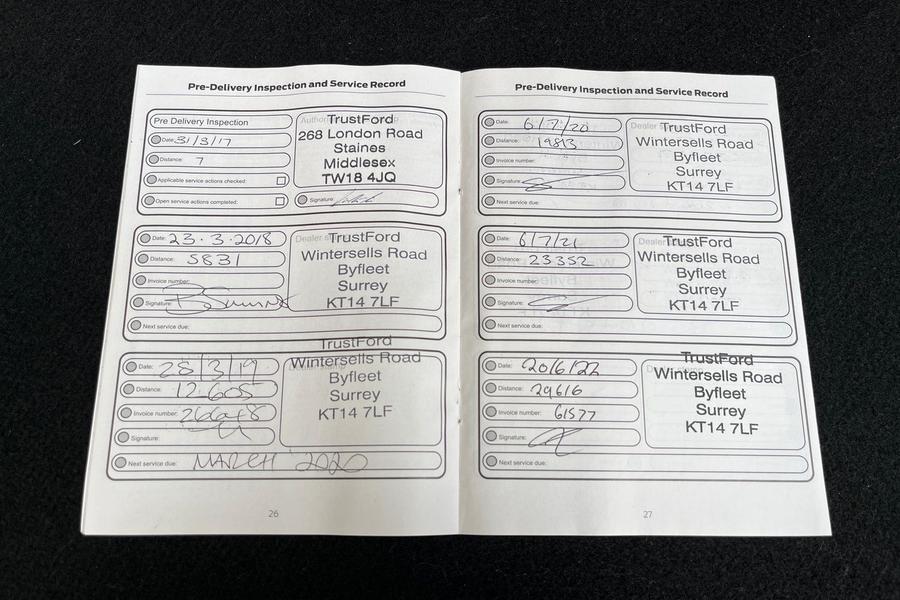 Pre-Delivery Inspection and Service Record
Pre Delivery Inspection
Date: 31/3/17
Distance: 7
Applicable service actions checked:
Open service actions completed:
TrustFord
268 London Road
Staines
Middlesex
TW18 4JQ
Signature:
Date: 23.3.2018
Distance: 5831
Invoice number:
Signature:
Next service due:
Dealer
TrustFord
Wintersells Road
Byfleet
Surrey
KT14 7LF
Date: 28/3/19
Distance: 12,605
Invoice number:
Signature:
Next service due: MARCH 2020
TrustFord
Wintersells Road
Byfleet
Surrey
KT14 7LF
26
Pre-Delivery Inspection and Service Record
Date: 6/7/20
Distance: 19813
Invoice number:
Signature:
Next service due:
Dealer
TrustFord
Wintersells Road
Byfleet
Surrey
KT14 7LF
Date: 6/7/21
Distance: 23352
Invoice number:
Signature:
Next service due:
Dealer
TrustFord
Wintersells Road
Byfleet
Surrey
KT14 7LF
Date: 20/6/22
Distance: 29616
Invoice number: 61577
Signature:
Next service due:
TrustFord
Wintersells Road
Byfleet
Surrey
KT14 7LF
27